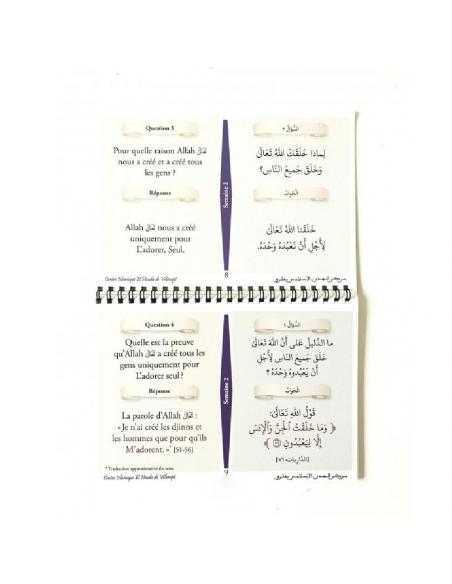 Question 3
Pour quelle raison Allah ﷻ
nous a créé et a créé tous
les gens ?
Réponse
Allah ﷻ nous a créé
uniquement pour
L'adorer, Seul.
Semaine 2
السُّؤَالُ ٣
لِمَاذَا خَلَقَنَا اللهُ تَعَالَى
وَخَلَقَ جَمِيعَ النَّاسِ؟
الْجَوَابُ
خَلَقَنَا اللهُ تَعَالَى
لِأَجْلِ أَنْ نَعْبُدَهُ وَحْدَهُ.
8
Question 4
Quelle est la preuve
qu'Allah ﷻ a créé tous les
gens uniquement pour
L'adorer seul ?
Réponse
La parole d'Allah ﷻ :
«Je n'ai créé les djinns et
les hommes que pour qu'ils
M'adorent. »* [51-56]
* Traduction approximative du sens
Semaine 2
السُّؤَالُ ٤
مَا الدَّلِيلُ عَلَى أَنَّ اللهَ تَعَالَى
خَلَقَ جَمِيعَ النَّاسِ لِأَجْلِ
أَنْ يَعْبُدُوهُ وَحْدَهُ ؟
الْجَوَابُ
قَوْلُ اللهِ تَعَالَى:
﴿ وَمَا خَلَقْتُ الْجِنَّ وَالْإِنْسَ
إِلَّا لِيَعْبُدُونِ ﴾
[الذَّارِيَات: ٥٦]
9